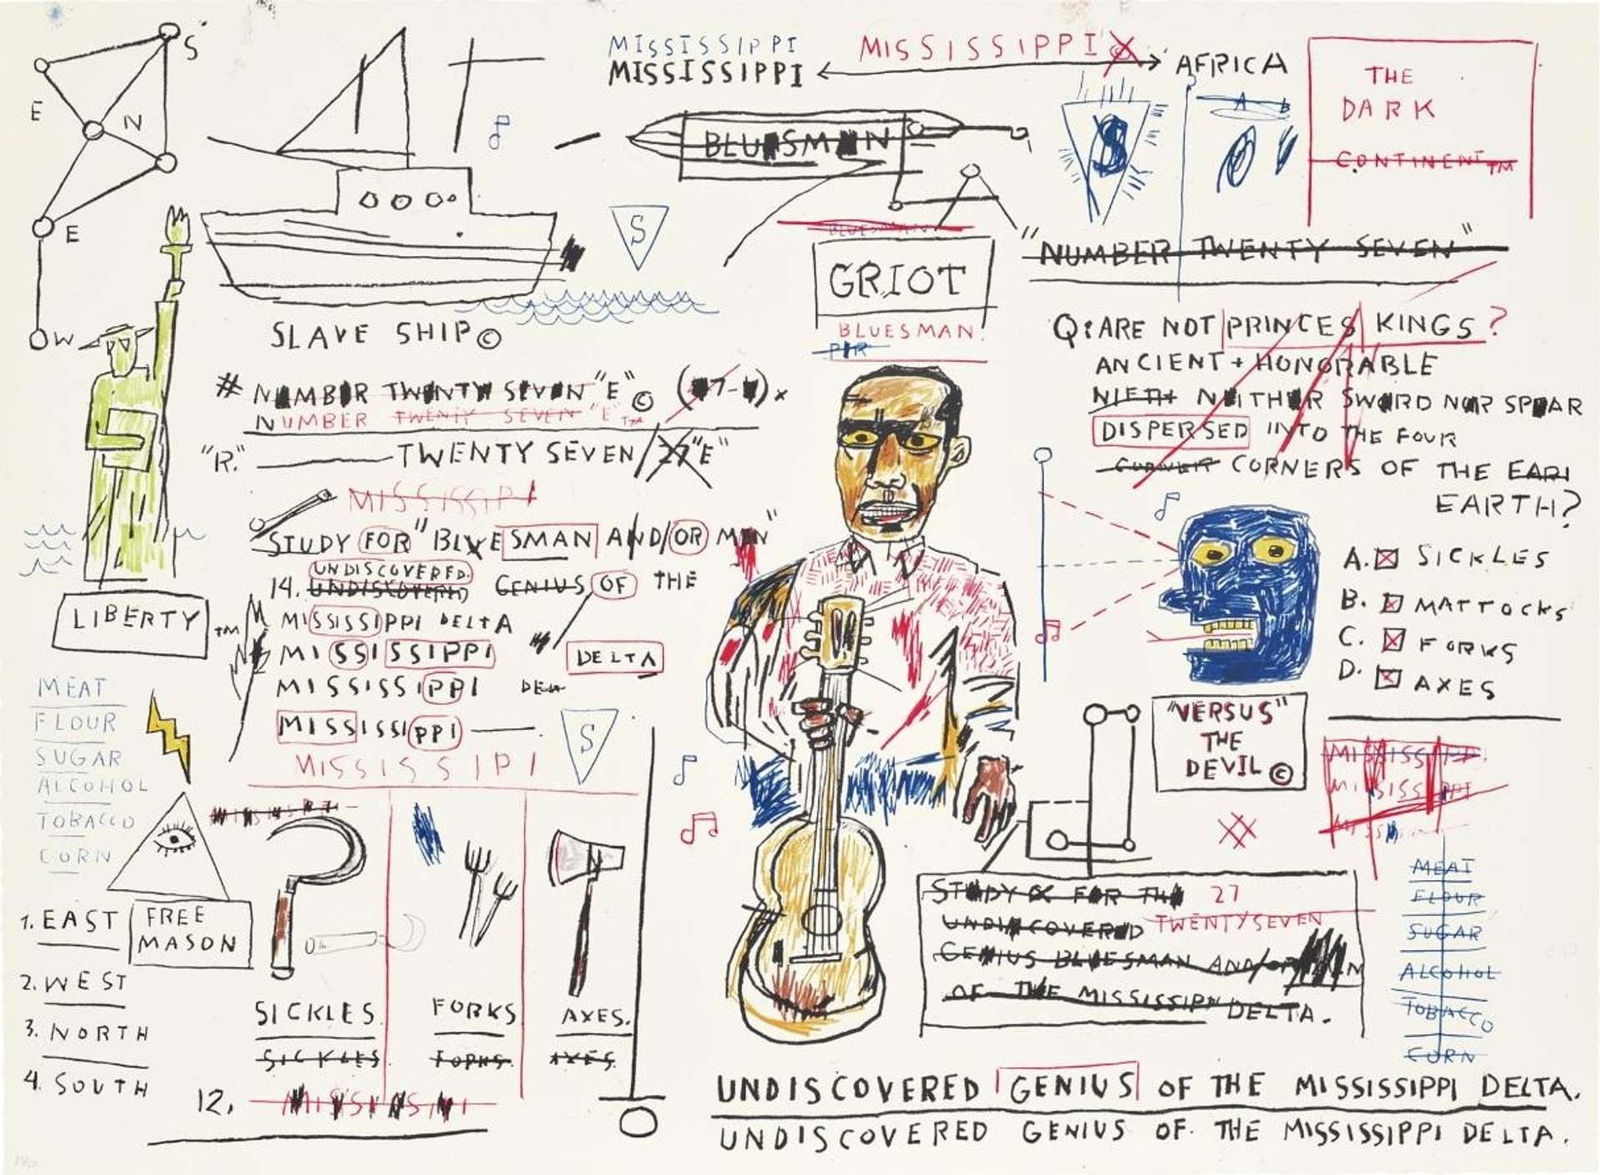 S
E
N
E
W
MISSISSIPPI
MISSISSIPPI
MISSISSIPPI
AFRICA
THE
DARK
CONTINENT™
BLUESMAN
S
A B
S
BLUESMAN
GRIOT
BLUESMAN.
"NUMBER TWENTY SEVEN"
SLAVE SHIP©
# NUMBER TWENTY SEVEN "E" ©
NUMBER TWENTY SEVEN "E"™
"R." TWENTY SEVEN/27"E"
MISSISSIPI
STUDY FOR "BLUESMAN AND/OR MAN"
UNDISCOVERED.
14. UNDISCOVERED GENIUS OF THE
MISSISSIPPI DELTA
MISSISSIPPI DELTA
MISSISSIPPI DELTA
MISSISSIPPI
MISSISSIPI
S
LIBERTY™
MEAT
FLOUR
SUGAR
ALCOHOL
TOBACCO
CORN
FREE
MASON
1. EAST
2. WEST
3. NORTH
4. SOUTH
SICKLES.
SICKLES
FORKS
FORKS
AXES.
AXES
12.
Q: ARE NOT PRINCES KINGS?
ANCIENT + HONORABLE
NIETH NEITHER SWORD NOR SPEAR
DISPERSED INTO THE FOUR
CORNER CORNERS OF THE EARI
EARTH?
A. SICKLES
B. MATTOCKS
C. FORKS
D. AXES
"VERSUS"
THE
DEVIL ©
MISSISSIPPI
MISSISSIPPI
MEAT
FLOUR
SUGAR
ALCOHOL
TOBACCO
CORN
STUDY FOR THE 27
UNDISCOVERED TWENTYSEVEN
GENIUS BLUESMAN AND/OR MAN
OF THE MISSISSIPPI DELTA.
UNDISCOVERED GENIUS OF THE MISSISSIPPI DELTA.
UNDISCOVERED GENIUS OF THE MISSISSIPPI DELTA.